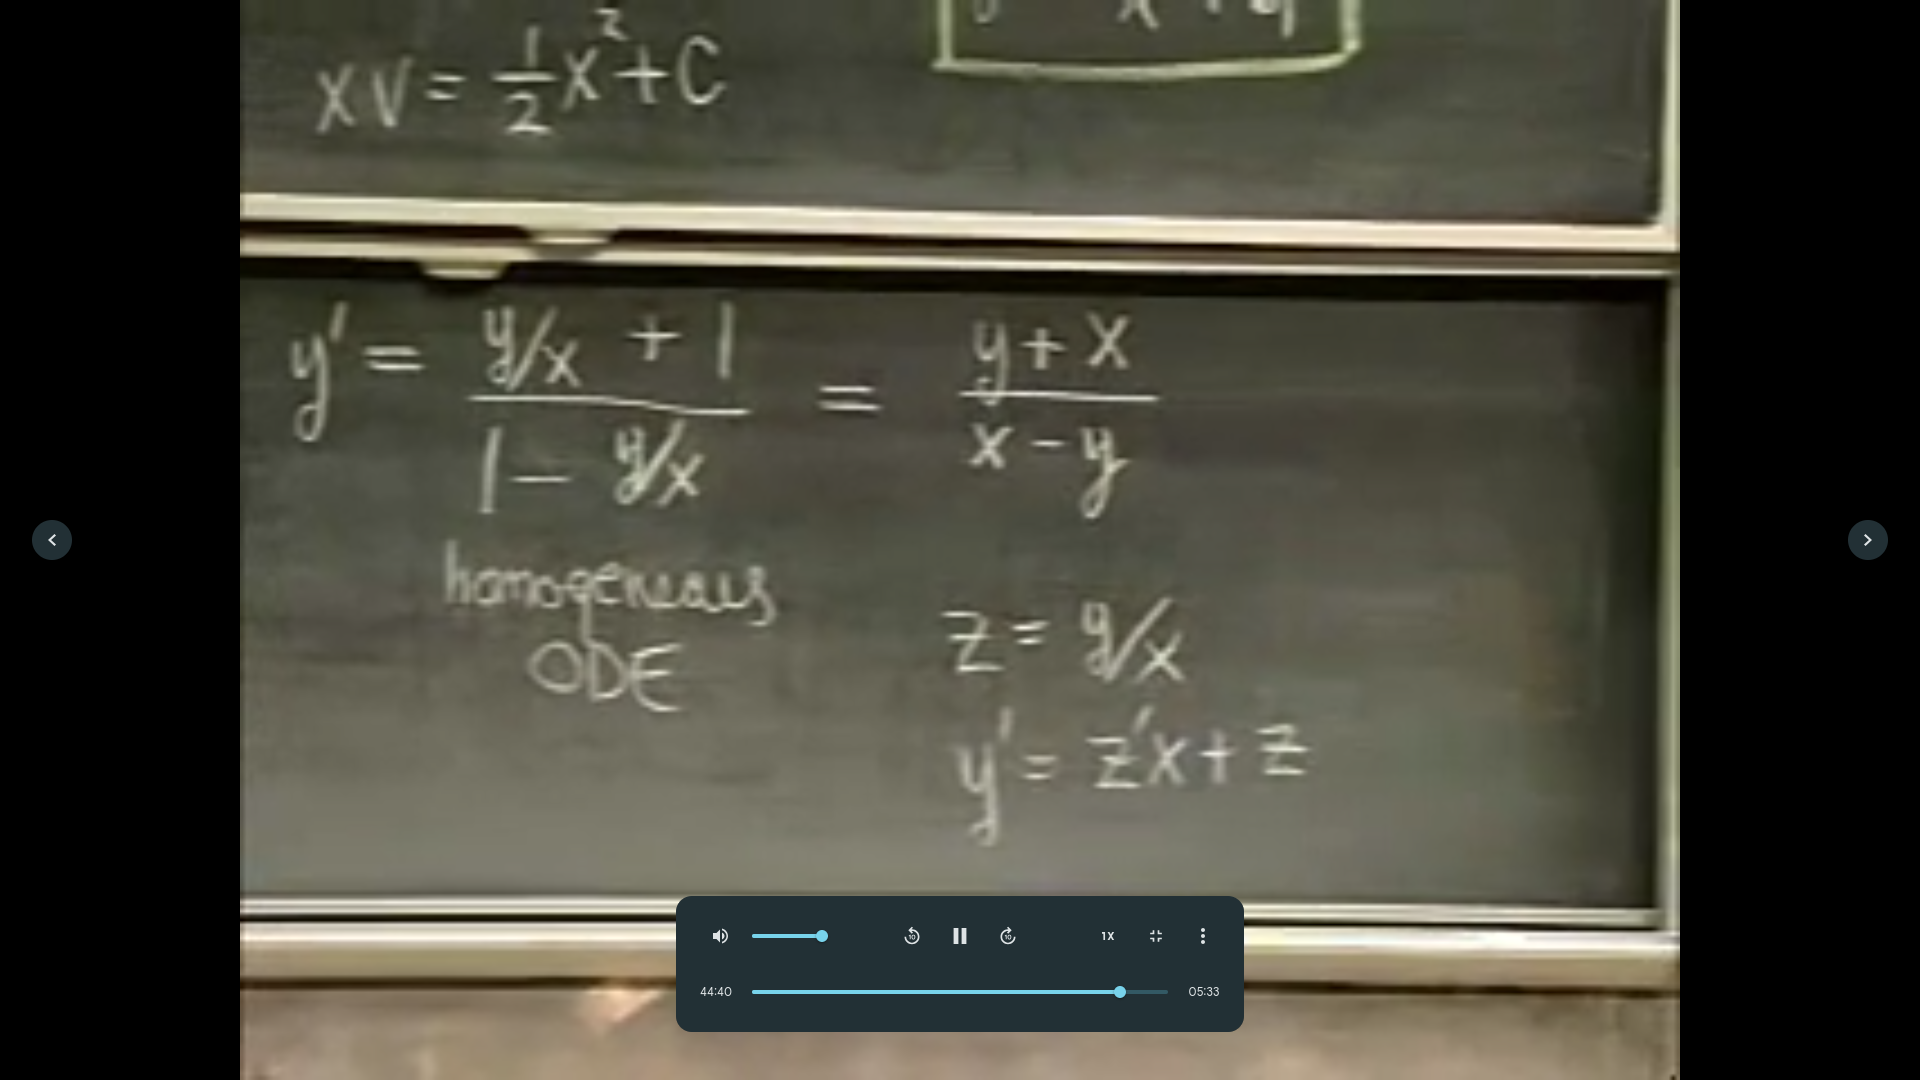 xv = 1/2 x² + C
y' = (y/x + 1)/(1 - y/x) = (y + x)/(x - y)
homogeneous
ODE
z = y/x
y' = z'x + z
10
10
1X
44:40
05:33